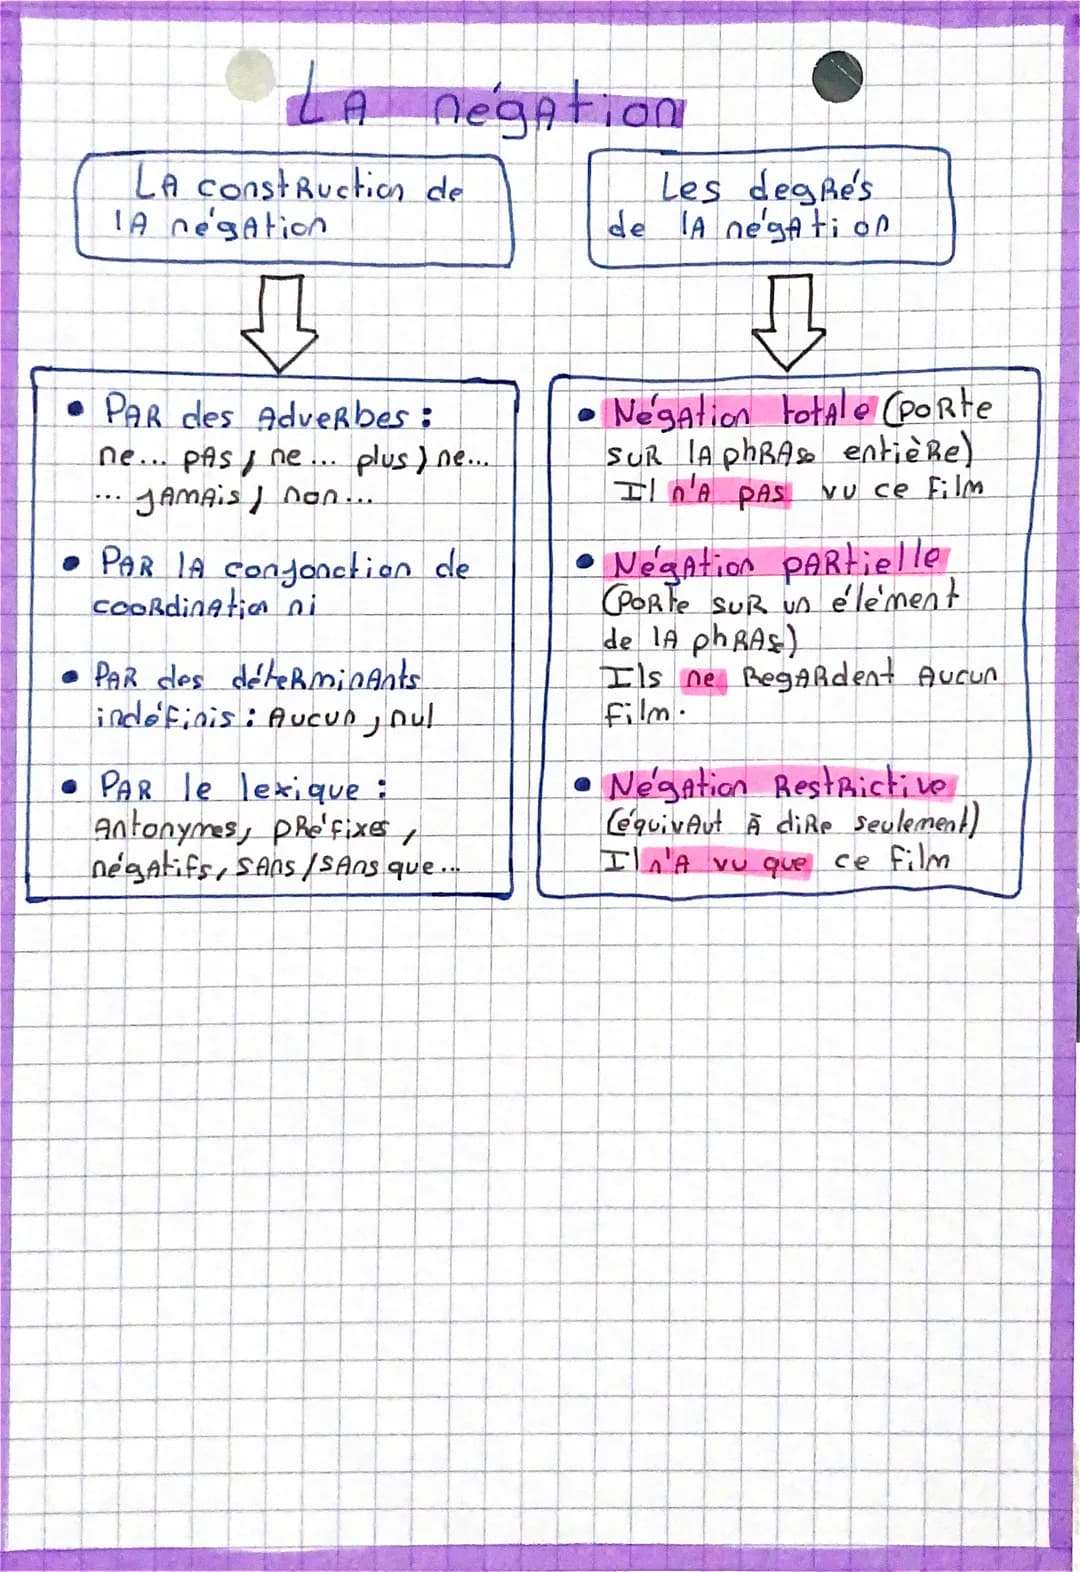 La négation
La construction de
la négation
Les degrés
de la négation
• Par des adverbes :
ne... pas, ne... plus, ne...
... jamais, non...
• Par la conjonction de
coordination ni
• Par des déterminants
indéfinis : aucun, nul
• Par le lexique :
antonymes, préfixes,
négatifs, sans/sans que...
• Négation totale (porte
sur la phrase entière)
Il n'a pas vu ce film
• Négation partielle
(porte sur un élément
de la phrase)
Ils ne regardent aucun
film.
• Négation restrictive
(équivaut à dire seulement)
Il n'a vu que ce film